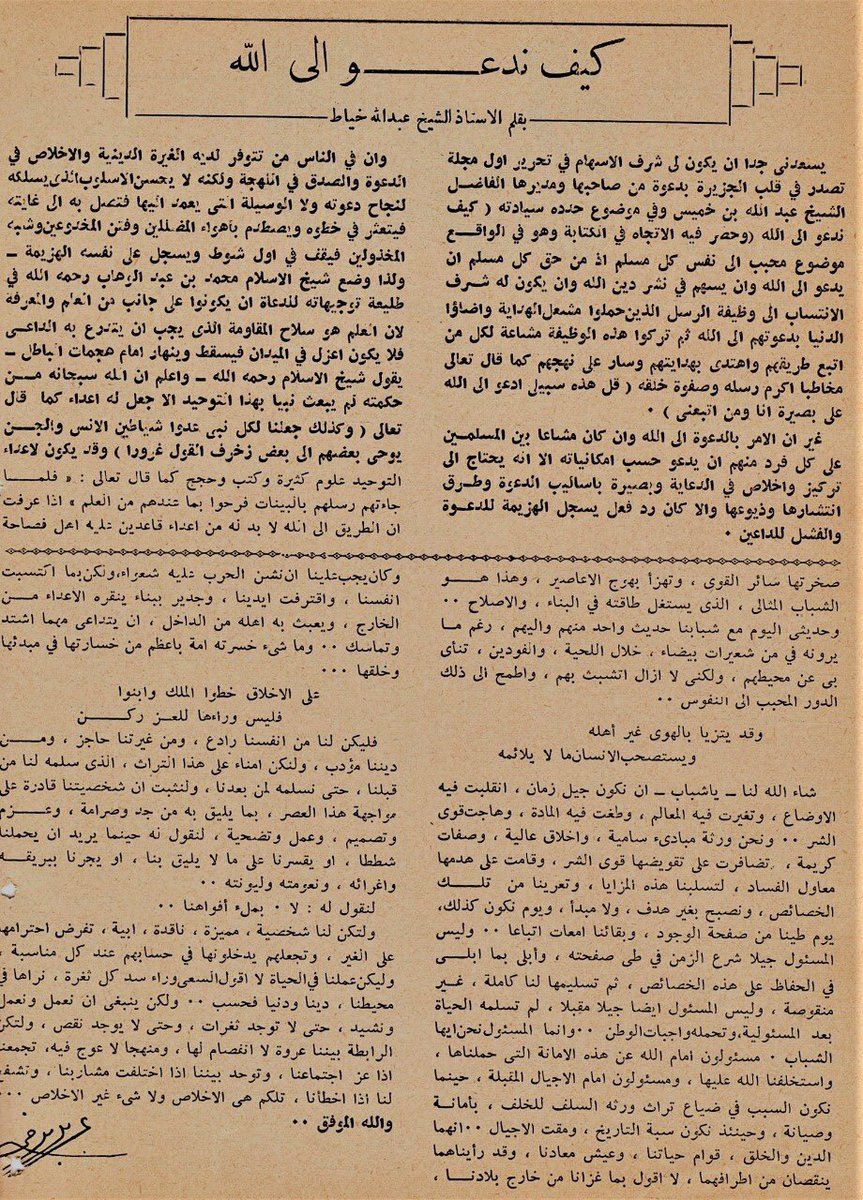 كيف ندعـــــــو الى الله
بقلم الاستاذ الشيخ عبدالله خياط
يسعدنى جدا ان يكون لى شرف الاسهام في تحرير اول مجلة
تصدر في قلب الجزيرة بدعوة من صاحبها ومديرها الفاضل
الشيخ عبد الله بن خميس وفي موضوع حدده سيادته ( كيف
ندعو الى الله (وحصر فيه الاتجاه في الكتابة وهو في الواقع
موضوع محبب الى نفس كل مسلم اذ من حق كل مسلم ان
يدعو الى الله وان يسهم في نشر دين الله وان يكون له شرف
الانتساب الى وظيفة الرسل الذين حملوا مشعل الهداية واضاؤا
الدنيا بدعوتهم الى الله ثم تركوا هذه الوظيفة مشاعة لكل من
اتبع طريقهم واهتدى بهدايتهم وسار على نهجهم كما قال تعالى
مخاطبا اكرم رسله وصفوة خلقه ( قل هذه سبيلى ادعو الى الله
على بصيرة انا ومن اتبعنى ) ٠
غير ان الامر بالدعوة الى الله وان كان مشاعا بين المسلمين
على كل فرد منهم ان يدعو حسب امكانياته الا انه يحتاج الى
تركيز واخلاص في الدعاية وبصيرة باساليب الدعوة وطرق
انتشارها وذيوعها والا كان رد فعل يسجل الهزيمة للدعوة
والفشل للداعين ٠
وان في الناس من تتوفر لديه الغيرة الدينية والاخلاص في
الدعوة والصدق في اللهجة ولكنه لا يحسن الاسلوب الذى يسلكه
لنجاح دعوته ولا الوسيلة التى يعمد اليها فتصل به الى غايته
فيتعثر في خطوه ويصطدم بأهواء المضللين وفتن المخدوعين وشبه
المخذولين فيقف في اول شوط ويسجل على نفسه الهزيمة ـ
ولذا وضع شيخ الاسلام محمد بن عبد الوهاب رحمه الله في
طليعة توجيهاته للدعاة ان يكونوا على جانب من العلم والمعرفة
لان العلم هو سلاح المقاومة الذى يجب ان يتدرع به الداعى
فلا يكون اعزل في الميدان فيسقط وينهار امام هجمات الباطل ـ
يقول شيخ الاسلام رحمه الله ـ واعلم ان الله سبحانه مـن
حكمته لم يبعث نبيا بهذا التوحيد الا جعل له اعداء كما قال
تعالى ( وكذلك جعلنا لكل نبى عدوا شياطين الانس والجـن
يوحى بعضهم الى بعض زخرف القول غرورا ) وقد يكون لاعداء
التوحيد علوم كثيرة وكتب وحجج كما قال تعالى : « فلمـا
جاءتهم رسلهم بالبينات فرحوا بما عندهم من العلم » اذا عرفت
ان الطريق الى الله لا بد له من اعداء قاعدين عليه اهل فصاحة
صخرتها سائر القوى ، وتهزأ بهوج الاعاصير ، وهذا هـو
الشباب المثالى ، الذى يستغل طاقته في البناء ، والاصلاح ٠٠
وحديثى اليوم مع شبابنا حديث واحد منهم واليهم ، رغم ما
يرونه في من شعيرات بيضاء ، خلال اللحية ، والفودين ، تنأى
بى عن محيطهم ، ولكنى لا ازال اتشبث بهم ، واطمح الى ذلك
الدور المحبب الى النفوس ٠٠
وقد يتزيا بالهوى غير أهله
ويستصحب الانسان ما لا يلائمه
شاء الله لنا ـ ياشباب ـ ان نكون جيل زمان ، انقلبت فيه
الاوضاع ، وتغيرت فيه المعالم ، وطغت فيه المادة ، وهاجت قوى
الشر ٠٠ ونحن ورثة مبادىء سامية ، واخلاق عالية ، وصفات
كريمة ، تضافرت على تقويضها قوى الشر ، وقامت على هدمها
معاول الفساد ، لتسلبنا هذه المزايا ، وتعرينا من تلـك
الخصائص ، ونصبح بغير هدف ، ولا مبدأ ، ويوم نكون كذلك،
يوم طينا من صفحة الوجود ، وبقائنا امعات اتباعا ٠٠ وليس
المسئول جيلا شرع الزمن في طى صفحته ، وأبلى بما ابلـى
في الحفاظ على هذه الخصائص ، ثم تسليمها لنا كاملة ، غـير
منقوصة ، وليس المسئول ايضا جيلا مقبلا ، لم تسلمه الحياة
بعد المسئولية، وتحمله واجبات الوطن ٠٠ وانما المسئول نحن ايها
الشباب ٠ مسئولون امام الله عن هذه الامانة التى حملناها ،
واستخلفنا الله عليها ، ومسئولون امام الاجيال المقبلة ، حينما
نكون السبب في ضياع تراث ورثه السلف للخلف ، بأمانة
وصيانة ، وحينئذ نكون سبة التاريخ ، ومقت الاجيال ٠٠ انهما
الدين والخلق ، قوام حياتنا ، وعيش معادنا ، وقد رأيناهما
ينقصان من اطرافهما ، لا اقول بما غزانا من خارج بلادنـا ،
وكان يجب علينا ان نشن الحرب عليه شعواء، ولكن بما اكتسبت
انفسنا ، واقترفت ايدينا ، وجدير ببناء ينقره الاعداء مـن
الخارج ، ويعبث به اهله من الداخل ، ان يتداعى مهما اشتد
وتماسك ٠٠ وما شىء خسرته امة باعظم من خسارتها في مبدئها
وخلقها ٠٠٠
على الاخلاق خطوا الملك وابنوا
فليس وراءها للعـز ركـن
فليكن لنا من انفسنا رادع ، ومن غيرتنا حاجز ، ومـن
ديننا مؤدب ، ولنكن امناء على هذا التراث ، الذى سلمه لنا من
قبلنا ، حتى نسلمه لمن بعدنا ، ولنثبت ان شخصيتنا قادرة على
مواجهة هذا العصر ، بما يليق به من جد وصرامة ، وعـزم
وتصميم ، وعمل وتضحية ، لنقول له حينما يريد ان يحملنا
شططا ، او يقسرنا على ما لا يليق بنا ، او يجرنا ببريقـه
واغرائه ، ونعومته وليونته ٠٠
لنقول له : لا ٠ بملء أفواهنا ٠٠
ولتكن لنا شخصية ، مميزة ، ناقدة ، ابية ، تفرض احترامها
على الغير ، وتجعلهم يدخلونها في حسابهم عند كل مناسبة ،
وليكن عملنا في الحياة لا اقول السعى وراء سد كل ثغرة ، نراها في
محيطنا ، دينا ودنيا فحسب ٠٠ ولكن ينبغى ان نعمل ونعمل
ونشيد ، حتى لا توجد ثغرات ، وحتى لا يوجد نقص ، ولتكن
الرابطة بيننا عروة لا انفصام لها ، ومنهجا لا عوج فيه، تجمعنا
اذا عز اجتماعنا ، وتوحد بيننا اذا اختلفت مشاربنا ، وتشفع
لنا اذا اخطأنا ، تلكم هى الاخلاص ولا شىء غير الاخلاص ٠٠٠
والله الموفق ٠٠